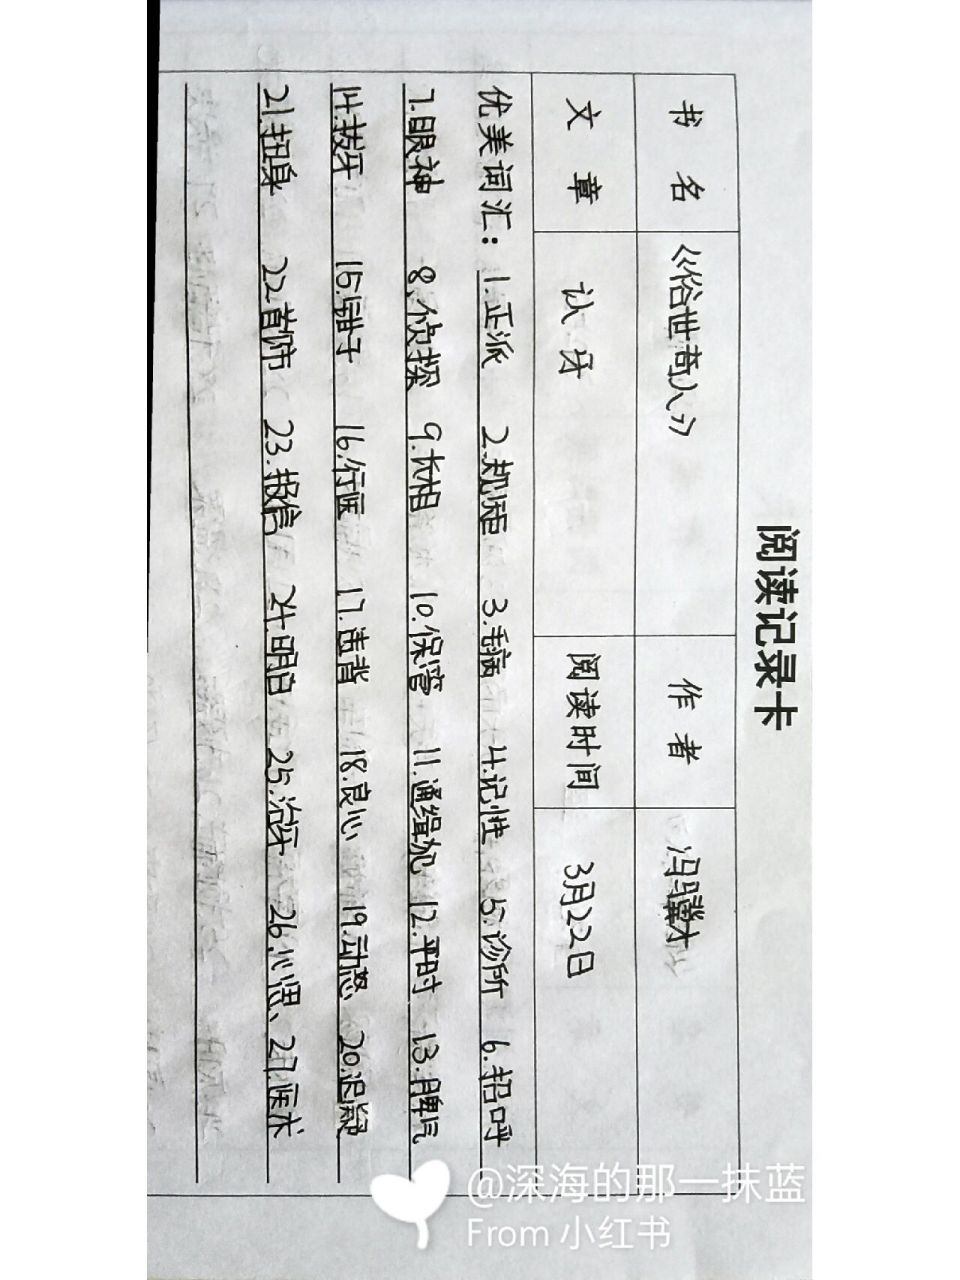 阅读记录卡
书名 《俗世奇人》 作者 冯骥才
文章 认牙 阅读时间 3月22日
优美词汇：1.正派 2.规矩 3.毛病 4.记性 5.诊所 6.招呼
7.眼神 8.侦探 9.长相 10.保管 11.通缉犯 12.平时 13.脾气
14.拔牙 15.钳子 16.行医 17.违背 18.良心 19.动怒 20.迟疑
21.扭身 22.首饰 23.报信 24.明白 25.治牙 26.心思、27.医术
@深海的那一抹蓝
From 小红书